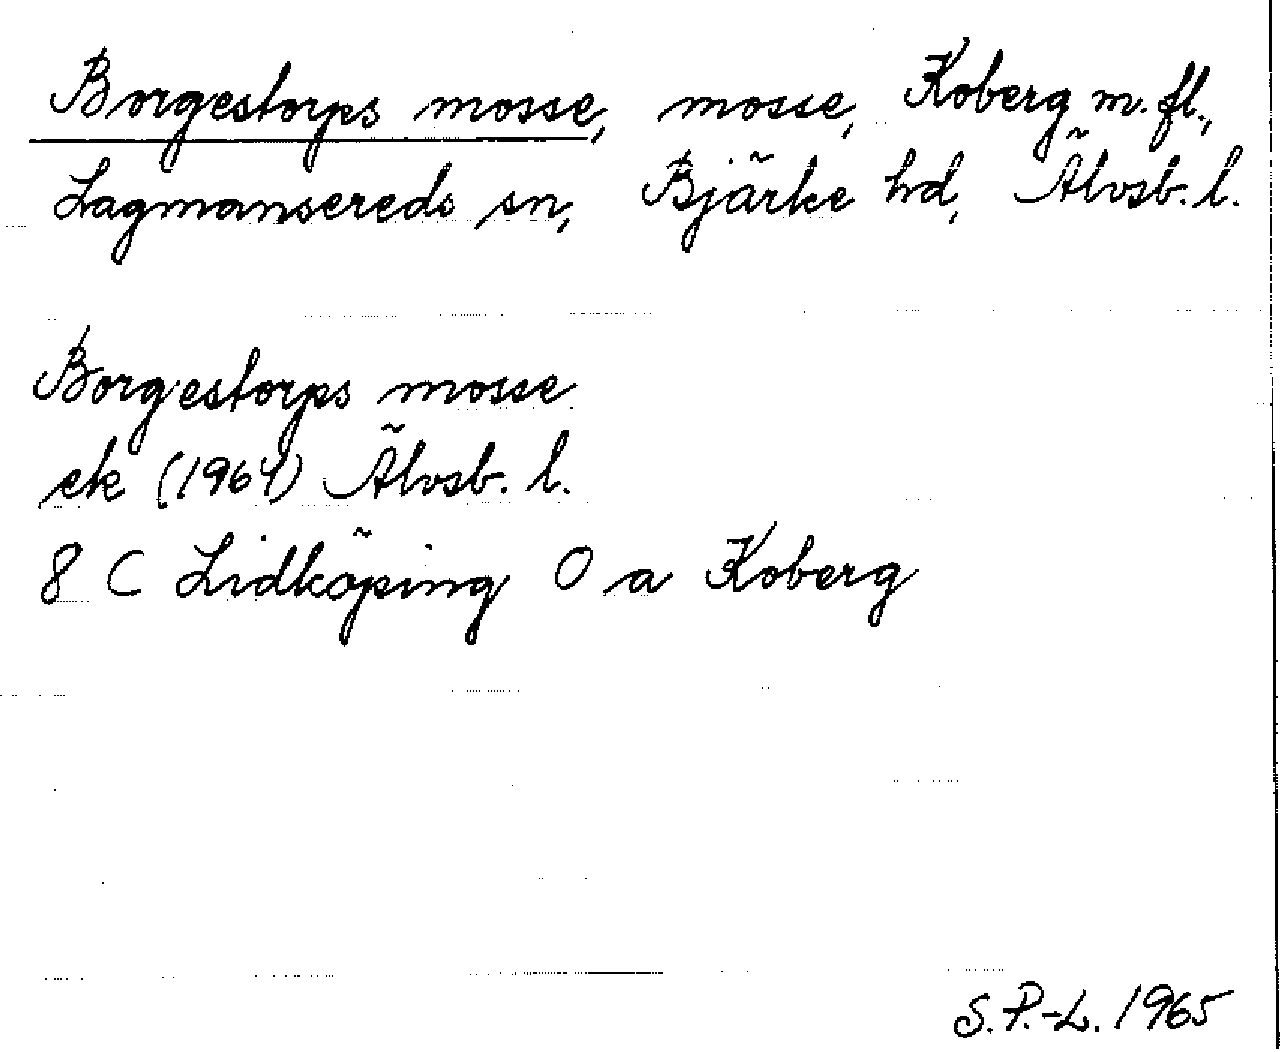 Borgestorps mosse, mosse, Koberg m.fl.,
Lagmansereds sn, Bjärke hd, Älvsb. l.
Borgestorps mosse
ek (1964) Älvsb. l.
8 C Lidköping O a Koberg
S.P.-L. 1965